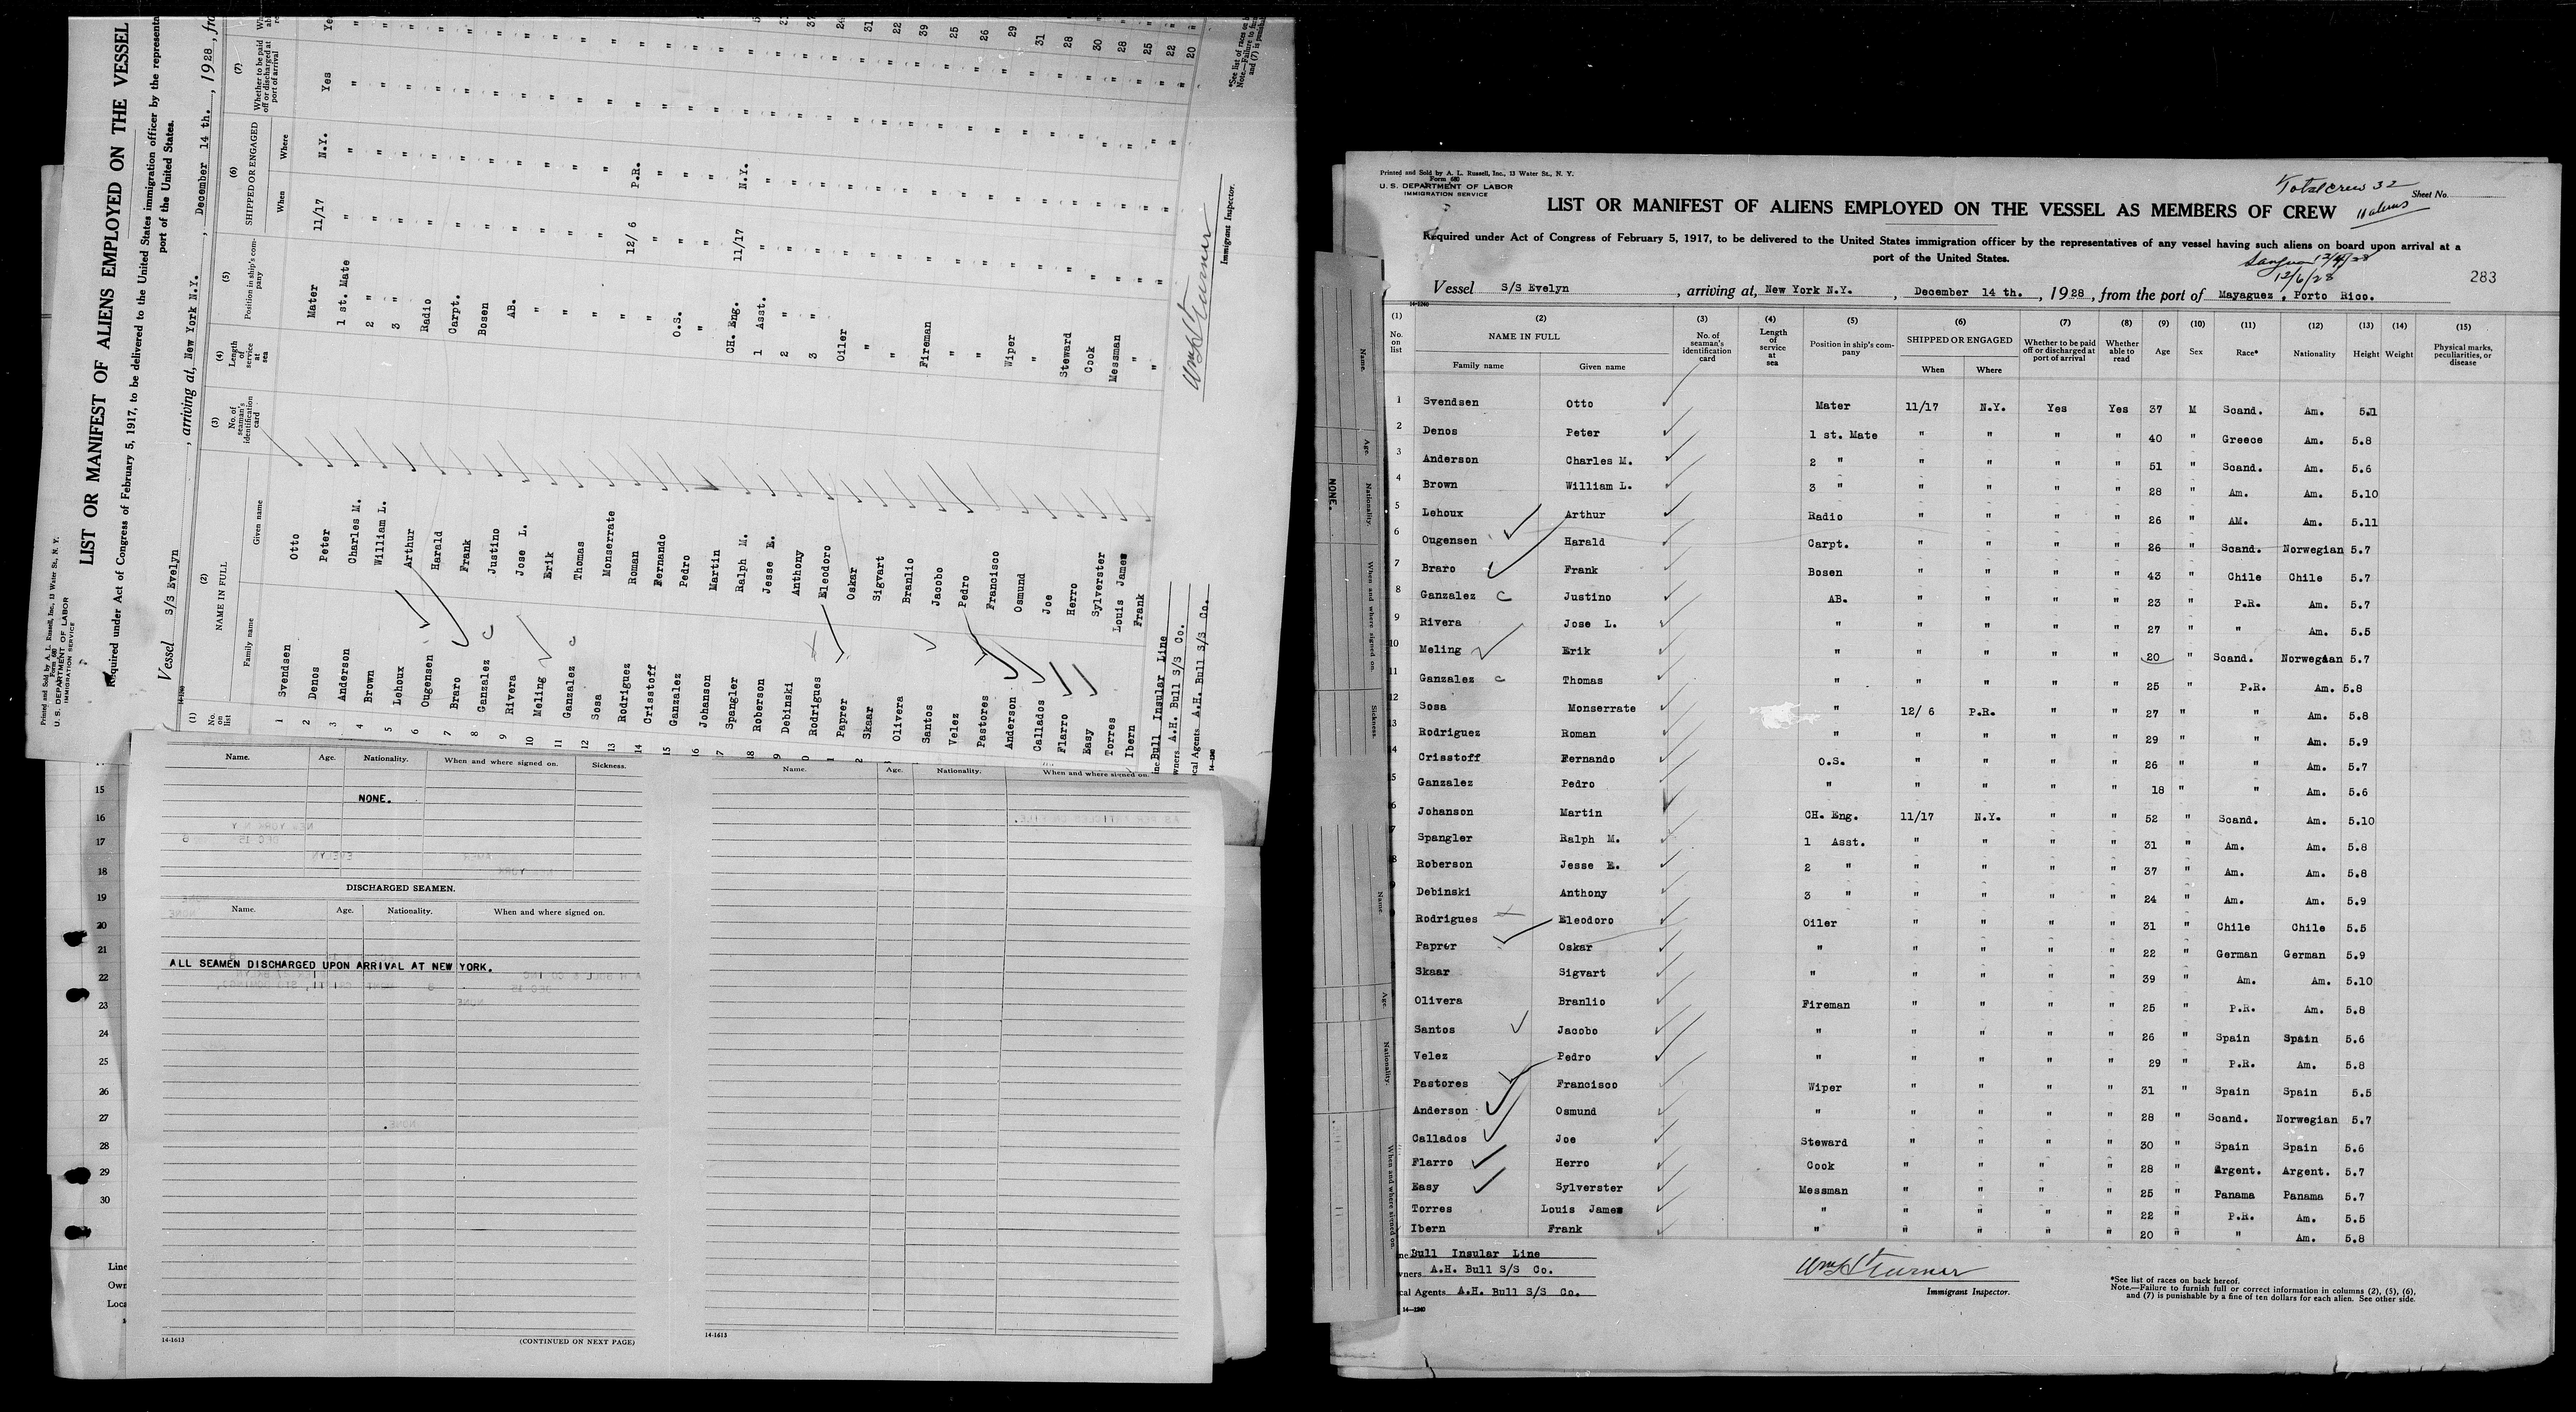 Printed and Sold by A. L. Russell, Inc., 13 Water St., N. Y.
Form 680
U. S. DEPARTMENT OF LABOR
IMMIGRATION SERVICE
LIST OR MANIFEST OF ALIENS EMPLOYED ON THE VESSEL
Required under Act of Congress of February 5, 1917, to be delivered to the United States immigration officer by the representa
port of the United States.
Vessel S/S Evelyn , arriving at, New York N.Y. , December 14 th. , 1928 , fro
(1) No. on list (2) NAME IN FULL Family name Given name (3) No. of seaman's identification card (4) Length of service at sea (5) Position in ship's company (6) SHIPPED OR ENGAGED When Where (7) Whether to be paid off or discharged at port of arrival
1 Svendsen Otto Mater 11/17 N.Y. Yes Yes
2 Denos Peter 1 st. Mate " " " "
3 Anderson Charles M. 2 " " " " "
4 Brown William L. 3 " " " " "
5 Lehoux Arthur Radio " " " "
6 Ougensen Harald Carpt. " " " "
7 Braro Frank Bosen " " " "
8 Ganzalez C Justino AB. " " " "
9 Rivera Jose L. " " " " "
10 Meling Erik " " " " "
11 Ganzalez C Thomas " " " " "
12 Sosa Monserrate " 12/ 6 P.R. " "
13 Rodriguez Roman " " " " "
14 Crisstoff Fernando O.S. " " " "
15 Ganzalez Pedro " " " " "
16 Johanson Martin CH. Eng. 11/17 N.Y. " "
17 Spangler Ralph M. 1 Asst. " " " "
18 Roberson Jesse E. 2 " " " " "
9 Debinski Anthony 3 " " " " "
0 Rodrigues Eleodoro Oiler " " " " 31
1 Paprer Oskar " " " " " 22
2 Skaar Sigvart " " " " " 39
Olivera Branlio Fireman " " " " 25
Santos Jacobo " " " " " 26
Velez Pedro " " " " " 29
Pastores Francisco Wiper " " " " 31
Anderson Osmund " " " " " 28
Callados Joe Steward " " " " 30
Flarro Herro Cook " " " " 28
Easy Sylverster Messman " " " " 25
Torres Louis James " " " " " 22
Ibern Frank " " " " " 20
ne Bull Insular Line
wners A.H. Bull S/S Co.
cal Agents A.H. Bull S/S Co.
14-1240
Wm H Turner
Immigrant Inspector.
*See list of races on b
Note.—Failure to furn
and (7) is punishab
Name. Age. Nationality. When and where signed on. Sickness.
NONE.
DISCHARGED SEAMEN.
Name. Age. Nationality. When and where signed on.
ALL SEAMEN DISCHARGED UPON ARRIVAL AT NEW YORK.
14-1613
(CONTINUED ON NEXT PAGE)
Name. Age. Nationality. When and where signed on.
14-1613
15
16
17
18
19
20
21
22
23
24
25
26
27
28
29
30
Line
Own
Loca
Printed and Sold by A. L. Russell, Inc., 13 Water St., N. Y.
Form 680
U. S. DEPARTMENT OF LABOR
IMMIGRATION SERVICE
Total crew 32
Sheet No.
LIST OR MANIFEST OF ALIENS EMPLOYED ON THE VESSEL AS MEMBERS OF CREW
11 aliens
Required under Act of Congress of February 5, 1917, to be delivered to the United States immigration officer by the representatives of any vessel having such aliens on board upon arrival at a
port of the United States.
12/6/28
283
Vessel S/S Evelyn , arriving at, New York N.Y. , December 14 th. , 1928 , from the port of Mayaguez , Porto Rico.
14-1240
(1) No. on list (2) NAME IN FULL Family name Given name (3) No. of seaman's identification card (4) Length of service at sea (5) Position in ship's company (6) SHIPPED OR ENGAGED When Where (7) Whether to be paid off or discharged at port of arrival (8) Whether able to read (9) Age (10) Sex (11) Race* (12) Nationality (13) Height (14) Weight (15) Physical marks, peculiarities, or disease
1 Svendsen Otto Mater 11/17 N.Y. Yes Yes 37 M Scand. Am. 5.11
2 Denos Peter 1 st. Mate " " " " 40 " Greece Am. 5.8
3 Anderson Charles M. 2 " " " " " 51 " Scand. Am. 5.6
4 Brown William L. 3 " " " " " 28 " Am. Am. 5.10
5 Lehoux Arthur Radio " " " " 26 " AM. Am. 5.11
6 Ougensen Harald Carpt. " " " " 26 " Scand. Norwegian 5.7
7 Braro Frank Bosen " " " " 43 " Chile Chile 5.7
8 Ganzalez C Justino AB. " " " " 23 " P.R. Am. 5.7
9 Rivera Jose L. " " " " " 27 " " Am. 5.5
10 Meling Erik " " " " " 20 " Scand. Norwegian 5.7
11 Ganzalez C Thomas " " " " " 25 " P.R. Am. 5.8
12 Sosa Monserrate " 12/ 6 P.R. " " 27 " " Am. 5.8
13 Rodriguez Roman " " " " " 29 " " Am. 5.9
14 Crisstoff Fernando O.S. " " " " 26 " " Am. 5.7
5 Ganzalez Pedro " " " " " 18 " " Am. 5.6
6 Johanson Martin CH. Eng. 11/17 N.Y. " " 52 " Scand. Am. 5.10
7 Spangler Ralph M. 1 Asst. " " " " 31 " Am. Am. 5.8
8 Roberson Jesse E. 2 " " " " " 37 " Am. Am. 5.8
9 Debinski Anthony 3 " " " " " 24 " Am. Am. 5.9
Rodrigues Eleodoro Oiler " " " " 31 " Chile Chile 5.5
Paprer Oskar " " " " " 22 " German German 5.9
Skaar Sigvart " " " " " 39 " Am. Am. 5.10
Olivera Branlio Fireman " " " " 25 " P.R. Am. 5.8
Santos Jacobo " " " " " 26 " Spain Spain 5.6
Velez Pedro " " " " " 29 " P.R. Am. 5.8
Pastores Francisco Wiper " " " " 31 " Spain Spain 5.5
Anderson Osmund " " " " " 28 " Scand. Norwegian 5.7
Callados Joe Steward " " " " 30 " Spain Spain 5.6
Flarro Herro Cook " " " " 28 " Argent. Argent. 5.7
Easy Sylverster Messman " " " " 25 " Panama Panama 5.7
Torres Louis James " " " " " 22 " P.R. Am. 5.5
Ibern Frank " " " " " 20 " " Am. 5.8
ne Bull Insular Line
wners A.H. Bull S/S Co.
cal Agents A.H. Bull S/S Co.
14-1240
Wm H Turner
Immigrant Inspector.
*See list of races on back hereof.
Note.—Failure to furnish full or correct information in columns (2), (5), (6),
and (7) is punishable by a fine of ten dollars for each alien. See other side.
Name. Age. Nationality. When and where signed on. Sickness.
NONE.
Name. Age. Nationality. When and where signed on.